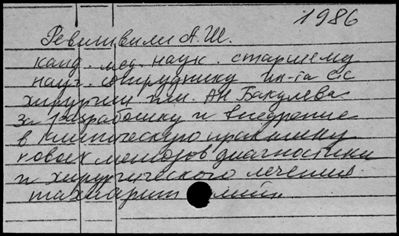 1986
Ревишвили А.Ш.
канд. мед. наук. старшему
науч. сотруднику ин-та сс
хирургии им. А.Н. Бакулева
за разработку и внедрение
в клиническую практику
новых методов диагностики
и хирургического лечения
тахиаритмий